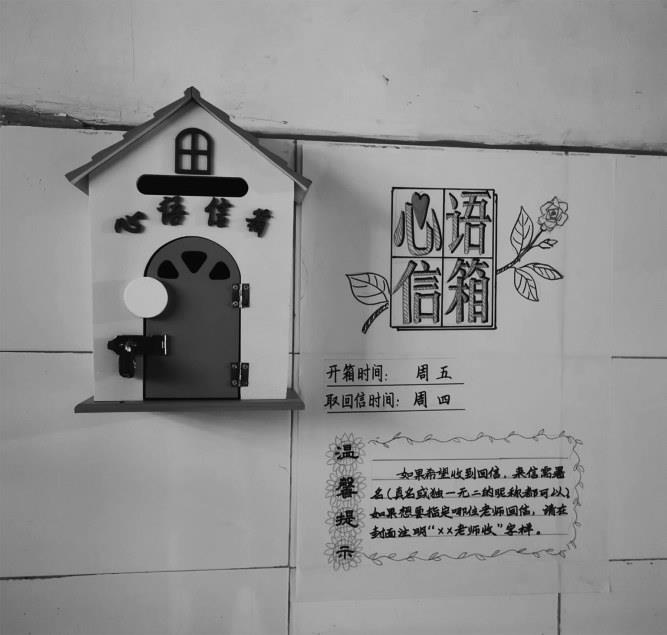 心语信箱
心语
信箱
开箱时间： 周五
取回信时间：周四
温馨提示
如果希望收到回信，来信需署
名（真名或独一无二的昵称都可以）
如果想要指定哪位老师回信，请在
封面注明“××老师收”字样。